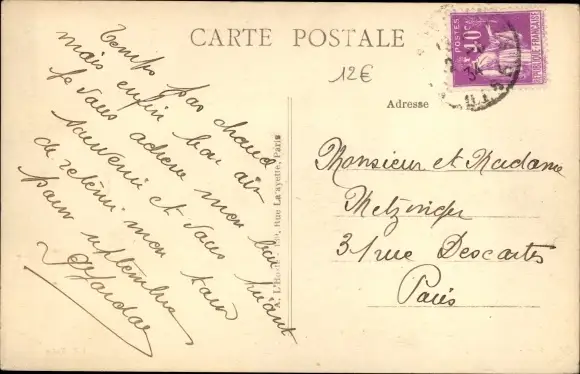 CARTE POSTALE
12€
Adresse
POSTES
40c
REPUBLIQUE FRANÇAISE
34
Temps pas chaud
mais enfin bon air
Je vous adresse mon bon
souvenir et vous
de retenir mon tour
pour septembre
Monsieur et Madame
Metzinger
31 rue Descartes
Paris
Rue Lafayette, Paris